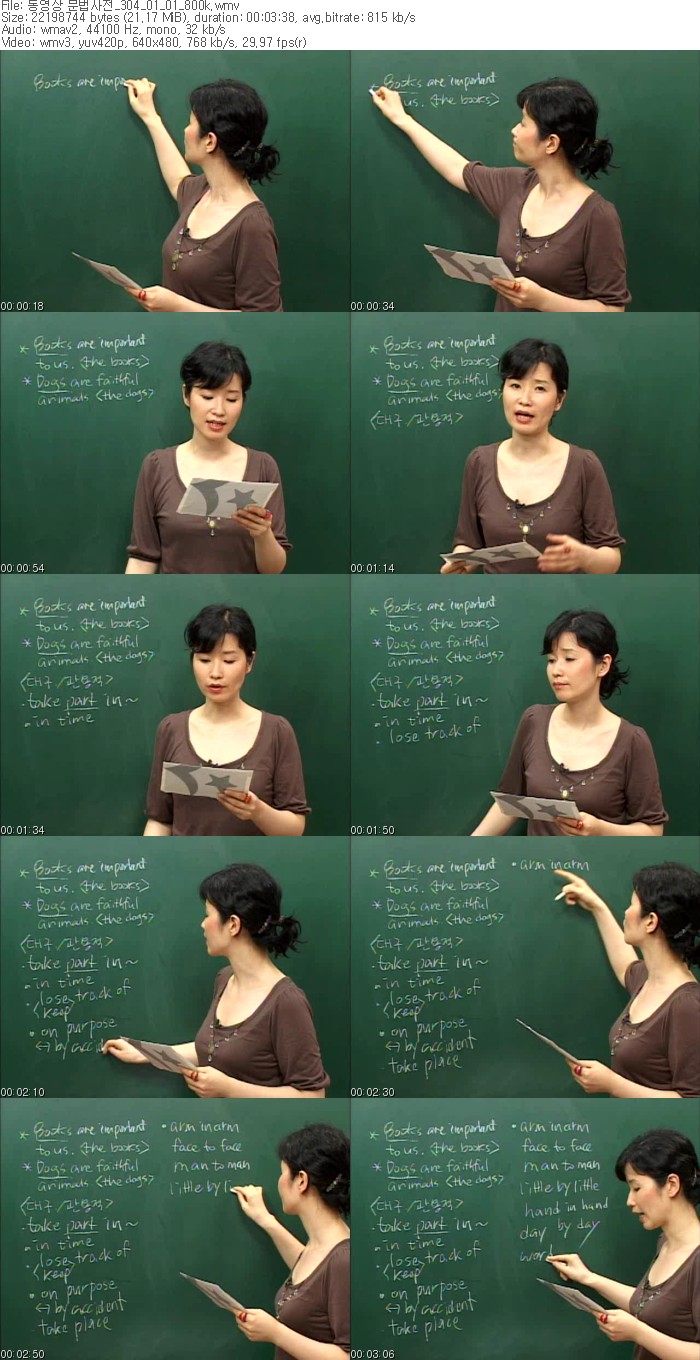 File: 동영상 문법사전_304_01_01_800k.wmv
Size: 22198744 bytes (21.17 MiB), duration: 00:03:38, avg.bitrate: 815 kb/s
Audio: wmav2, 44100 Hz, mono, 32 kb/s
Video: wmv3, yuv420p, 640x480, 768 kb/s, 29.97 fps(r)
Books are impo
00:00:18
Books are important
us. <the books>
00:00:34
* Books are important
to us. <the books>
* Dogs are faithful
animals <the dogs>
00:00:54
* Books are important
to us. <the books>
* Dogs are faithful
animals <the dogs>
<대구/관용적>
00:01:14
* Books are important
to us. <the books>
* Dogs are faithful
animals <the dogs>
<대구/관용적>
· take part in ~
· in time
00:01:34
* Books are important
to us. <the books>
* Dogs are faithful
animals <the dogs>
<대구/관용적>
· take part in ~
· in time
· lose track of
00:01:50
* Books are important
to us. <the books>
* Dogs are faithful
animals <the dogs>
<대구/관용적>
· take part in ~
· in time
· lose track of
keep
· on purpose
↔ by accid
00:02:10
* Books are important
to us. <the books>
* Dogs are faithful
animals <the dogs>
<대구/관용적>
· take part in ~
· in time
· lose track of
keep
· on purpose
↔ by accident
· take place
· arm in arm
00:02:30
* Books are important
to us. <the books>
* Dogs are faithful
animals <the dogs>
<대구/관용적>
· take part in ~
· in time
· lose track of
keep
· on purpose
↔ by accident
· take place
· arm in arm
face to face
man to man
little by li
00:02:50
* Books are important
to us. <the books>
* Dogs are faithful
animals <the dogs>
<대구/관용적>
· take part in ~
· in time
· lose track of
keep
· on purpose
↔ by accident
· take place
· arm in arm
face to face
man to man
little by little
hand in hand
day by day
word
00:03:06